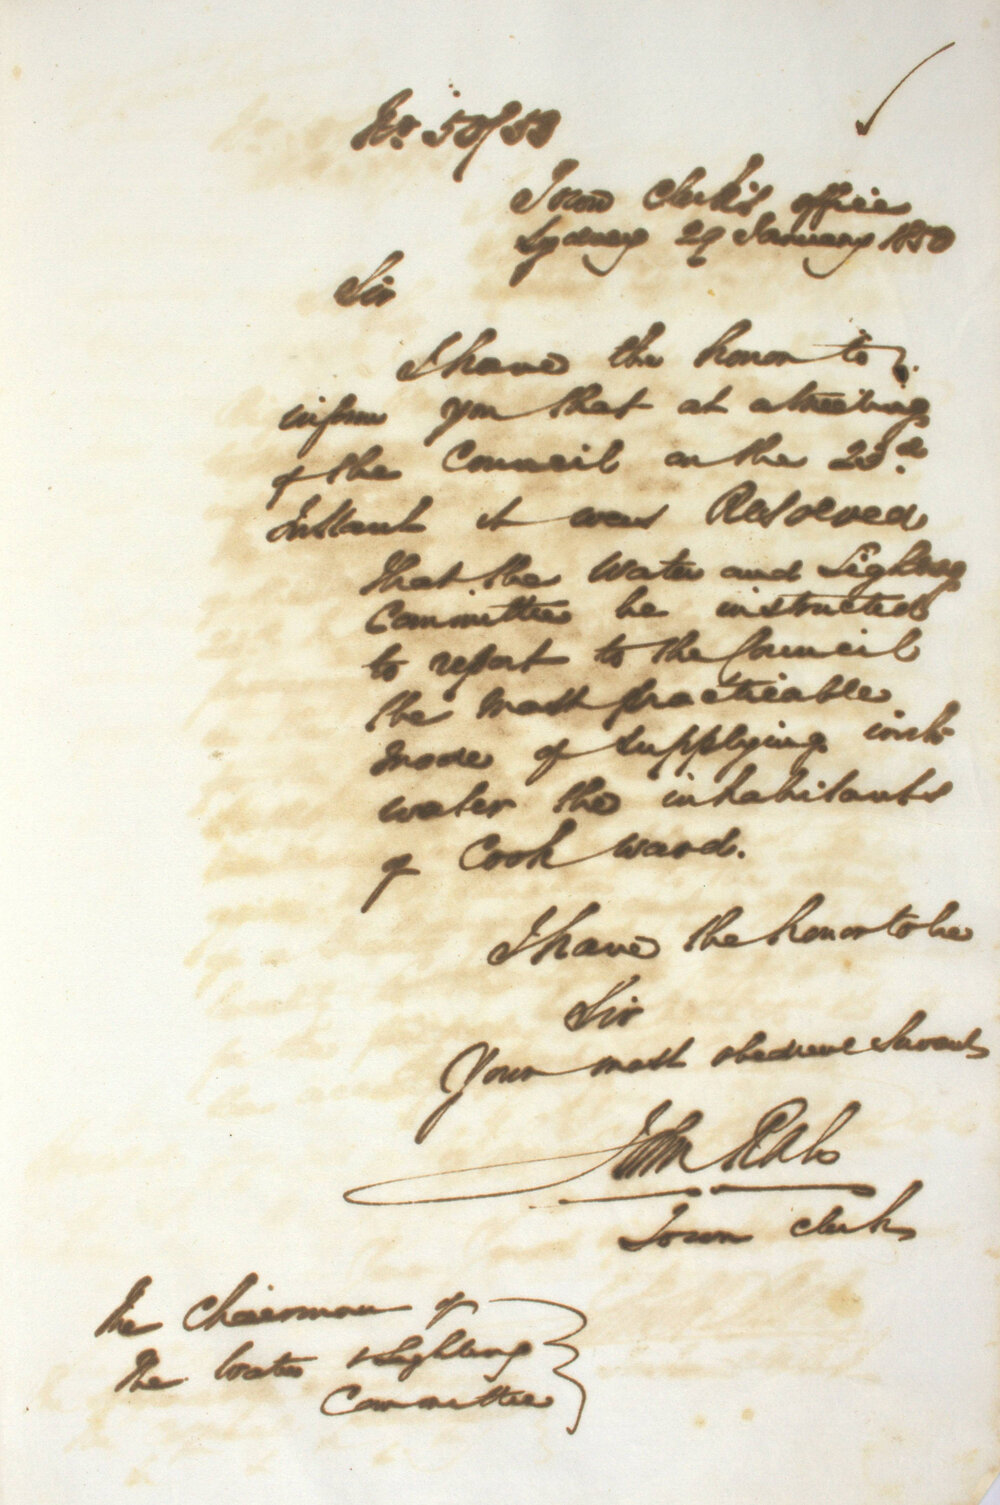 No. 50/53
Town Clerk's Office
Sydney 29 January 1850
Sir
I have the honor to
inform you that at a Meeting
of the Council on the 23rd
Instant it was Resolved
that the Water and Lighting
Committee be instructed
to report to the Council
the most practicable
mode of supplying with
water the inhabitants
of Cook ward.
I have the honor to be
Sir
Your most obedient Servant
John
Town Clerk
The Chairman of
the Water & Lighting
Committee